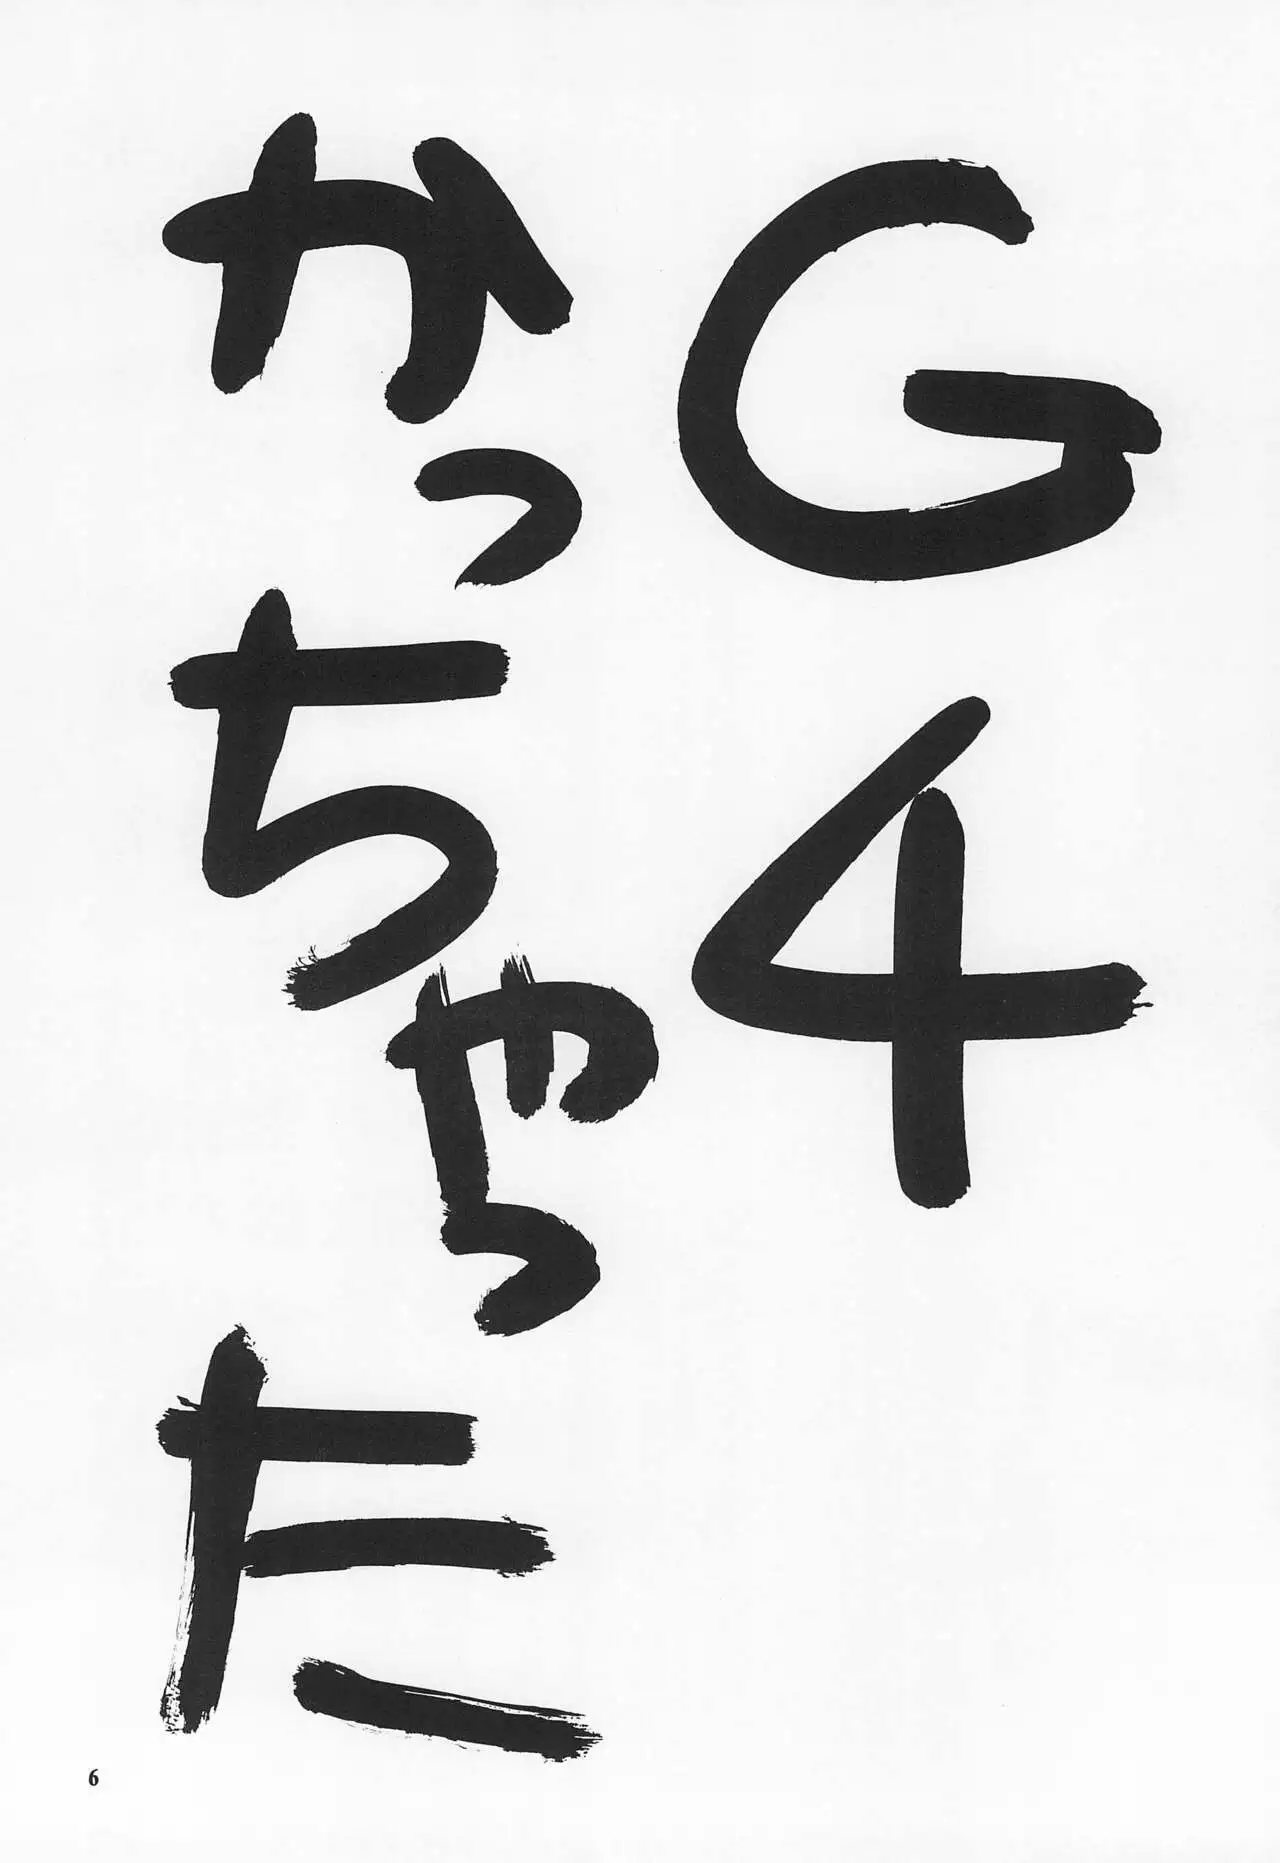 G4
かっちゃった
6